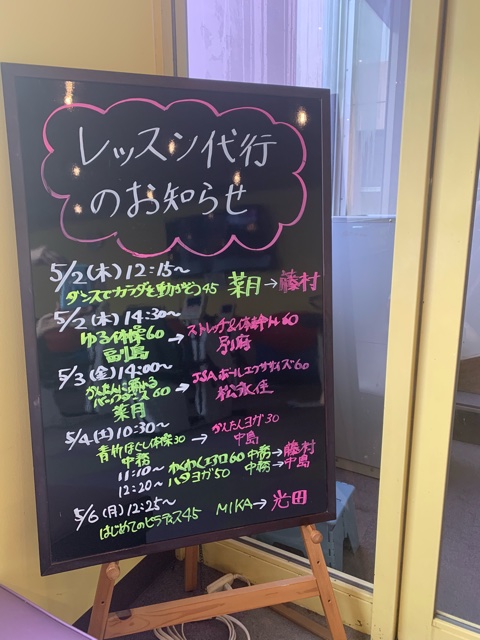 レッスン代行
のお知らせ
5/2(木)12:15~
ダンスでカラダを動かそう45 薬月→藤村
5/2(木)14:30~
ゆる体操60 → ストレッチ&体幹トレ60
5/3(金)14:00~
かんたんに踊れる → JSAボールエクササイズ60
60
薬月
5/4(土)10:30~
青竹ほぐし体操30 → かんたんヨガ30
中務 中島
11:10~ わくわくエアロ60 中務→藤村
12:20~ ハタヨガ50 中務→中島
5/6(月)12:25~
はじめてのピラティス45 MIKA→光田